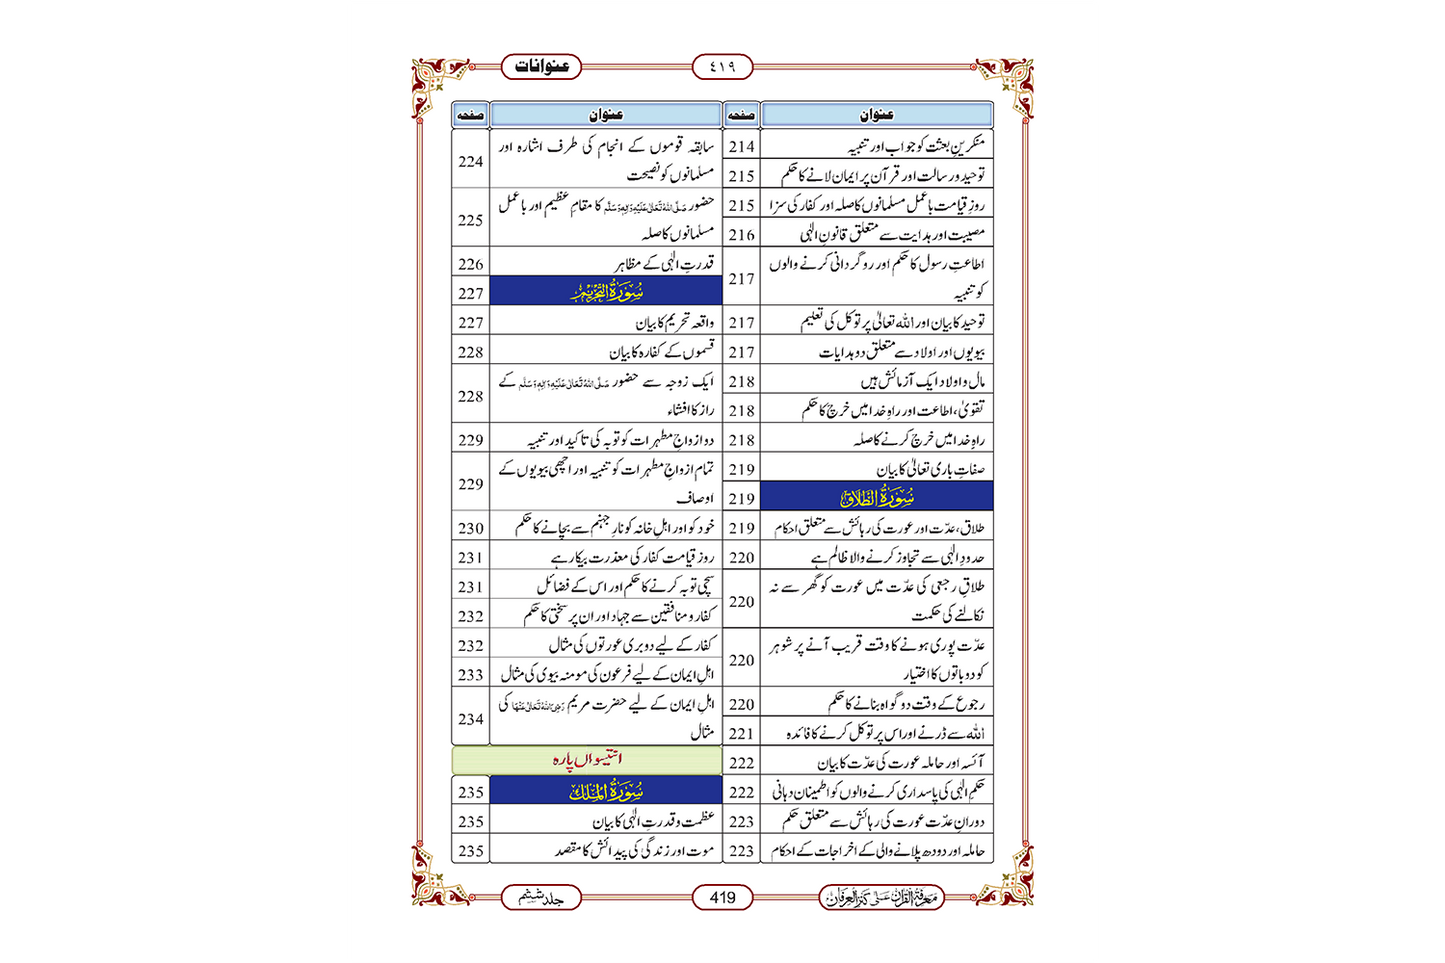 عنوانات
٤١٩
عنوان
صفحہ
منکرینِ بعثت کو جواب اور تنبیہ
214
توحید و رسالت اور قرآن پر ایمان لانے کا حکم
215
روزِ قیامت باعمل مسلمانوں کا صلہ اور کفار کی سزا
215
مصیبت اور ہدایت سے متعلق قانونِ الٰہی
216
اطاعتِ رسول کا حکم اور روگردانی کرنے والوں
کو تنبیہ
217
توحید کا بیان اور اللہ تعالیٰ پر توکل کی تعلیم
217
بیویوں اور اولاد سے متعلق دو ہدایات
217
مال و اولاد ایک آزمائش ہیں
218
تقویٰ، اطاعت اور راہِ خدا میں خرچ کا حکم
218
راہِ خدا میں خرچ کرنے کا صلہ
218
صفاتِ باری تعالیٰ کا بیان
219
سُوْرَةُ الطَّلَاق
219
طلاق، عدّت اور عورت کی رہائش سے متعلق احکام
219
حدودِ الٰہی سے تجاوز کرنے والا ظالم ہے
220
طلاقِ رجعی کی عدّت میں عورت کو گھر سے نہ
نکالنے کی حکمت
220
عدّت پوری ہونے کا وقت قریب آنے پر شوہر
کو دو باتوں کا اختیار
220
رجوع کے وقت دو گواہ بنانے کا حکم
220
اللہ سے ڈرنے اور اس پر توکل کرنے کا فائدہ
221
آئسہ اور حاملہ عورت کی عدّت کا بیان
222
حکمِ الٰہی کی پاسداری کرنے والوں کو اطمینان دہانی
222
دورانِ عدّت عورت کی رہائش سے متعلق حکم
223
حاملہ اور دودھ پلانے والی کے اخراجات کے احکام
223
عنوان
صفحہ
سابقہ قوموں کے انجام کی طرف اشارہ اور
مسلمانوں کو نصیحت
224
حضور صَلَّی اللہُ تَعَالٰی عَلَیْہِ وَاٰلِہٖ وَسَلَّم کا مقامِ عظیم اور باعمل
مسلمانوں کا صلہ
225
قدرتِ الٰہی کے مظاہر
226
سُوْرَةُ التَّحْرِيْم
227
واقعہ تحریم کا بیان
227
قسموں کے کفارہ کا بیان
228
ایک زوجہ سے حضور صَلَّی اللہُ تَعَالٰی عَلَیْہِ وَاٰلِہٖ وَسَلَّم کے
راز کا افشاء
228
دو ازواجِ مطہرات کو توبہ کی تاکید اور تنبیہ
229
تمام ازواجِ مطہرات کو تنبیہ اور اچھی بیویوں کے
اوصاف
229
خود کو اور اہلِ خانہ کو نارِ جہنم سے بچانے کا حکم
230
روزِ قیامت کفار کی معذرت بیکار ہے
231
سچی توبہ کرنے کا حکم اور اس کے فضائل
231
کفار و منافقین سے جہاد اور ان پر سختی کا حکم
232
کفار کے لیے دو بری عورتوں کی مثال
232
اہلِ ایمان کے لیے فرعون کی مومنہ بیوی کی مثال
233
اہلِ ایمان کے لیے حضرت مریم رَضِیَ اللہُ تَعَالٰی عَنْہَا کی
مثال
234
انتیسواں پارہ
سُوْرَةُ الْمُلْك
235
عظمت و قدرتِ الٰہی کا بیان
235
موت اور زندگی کی پیدائش کا مقصد
235
معرفۃ القرآن علیٰ کنز العرفان
419
جلد ششم